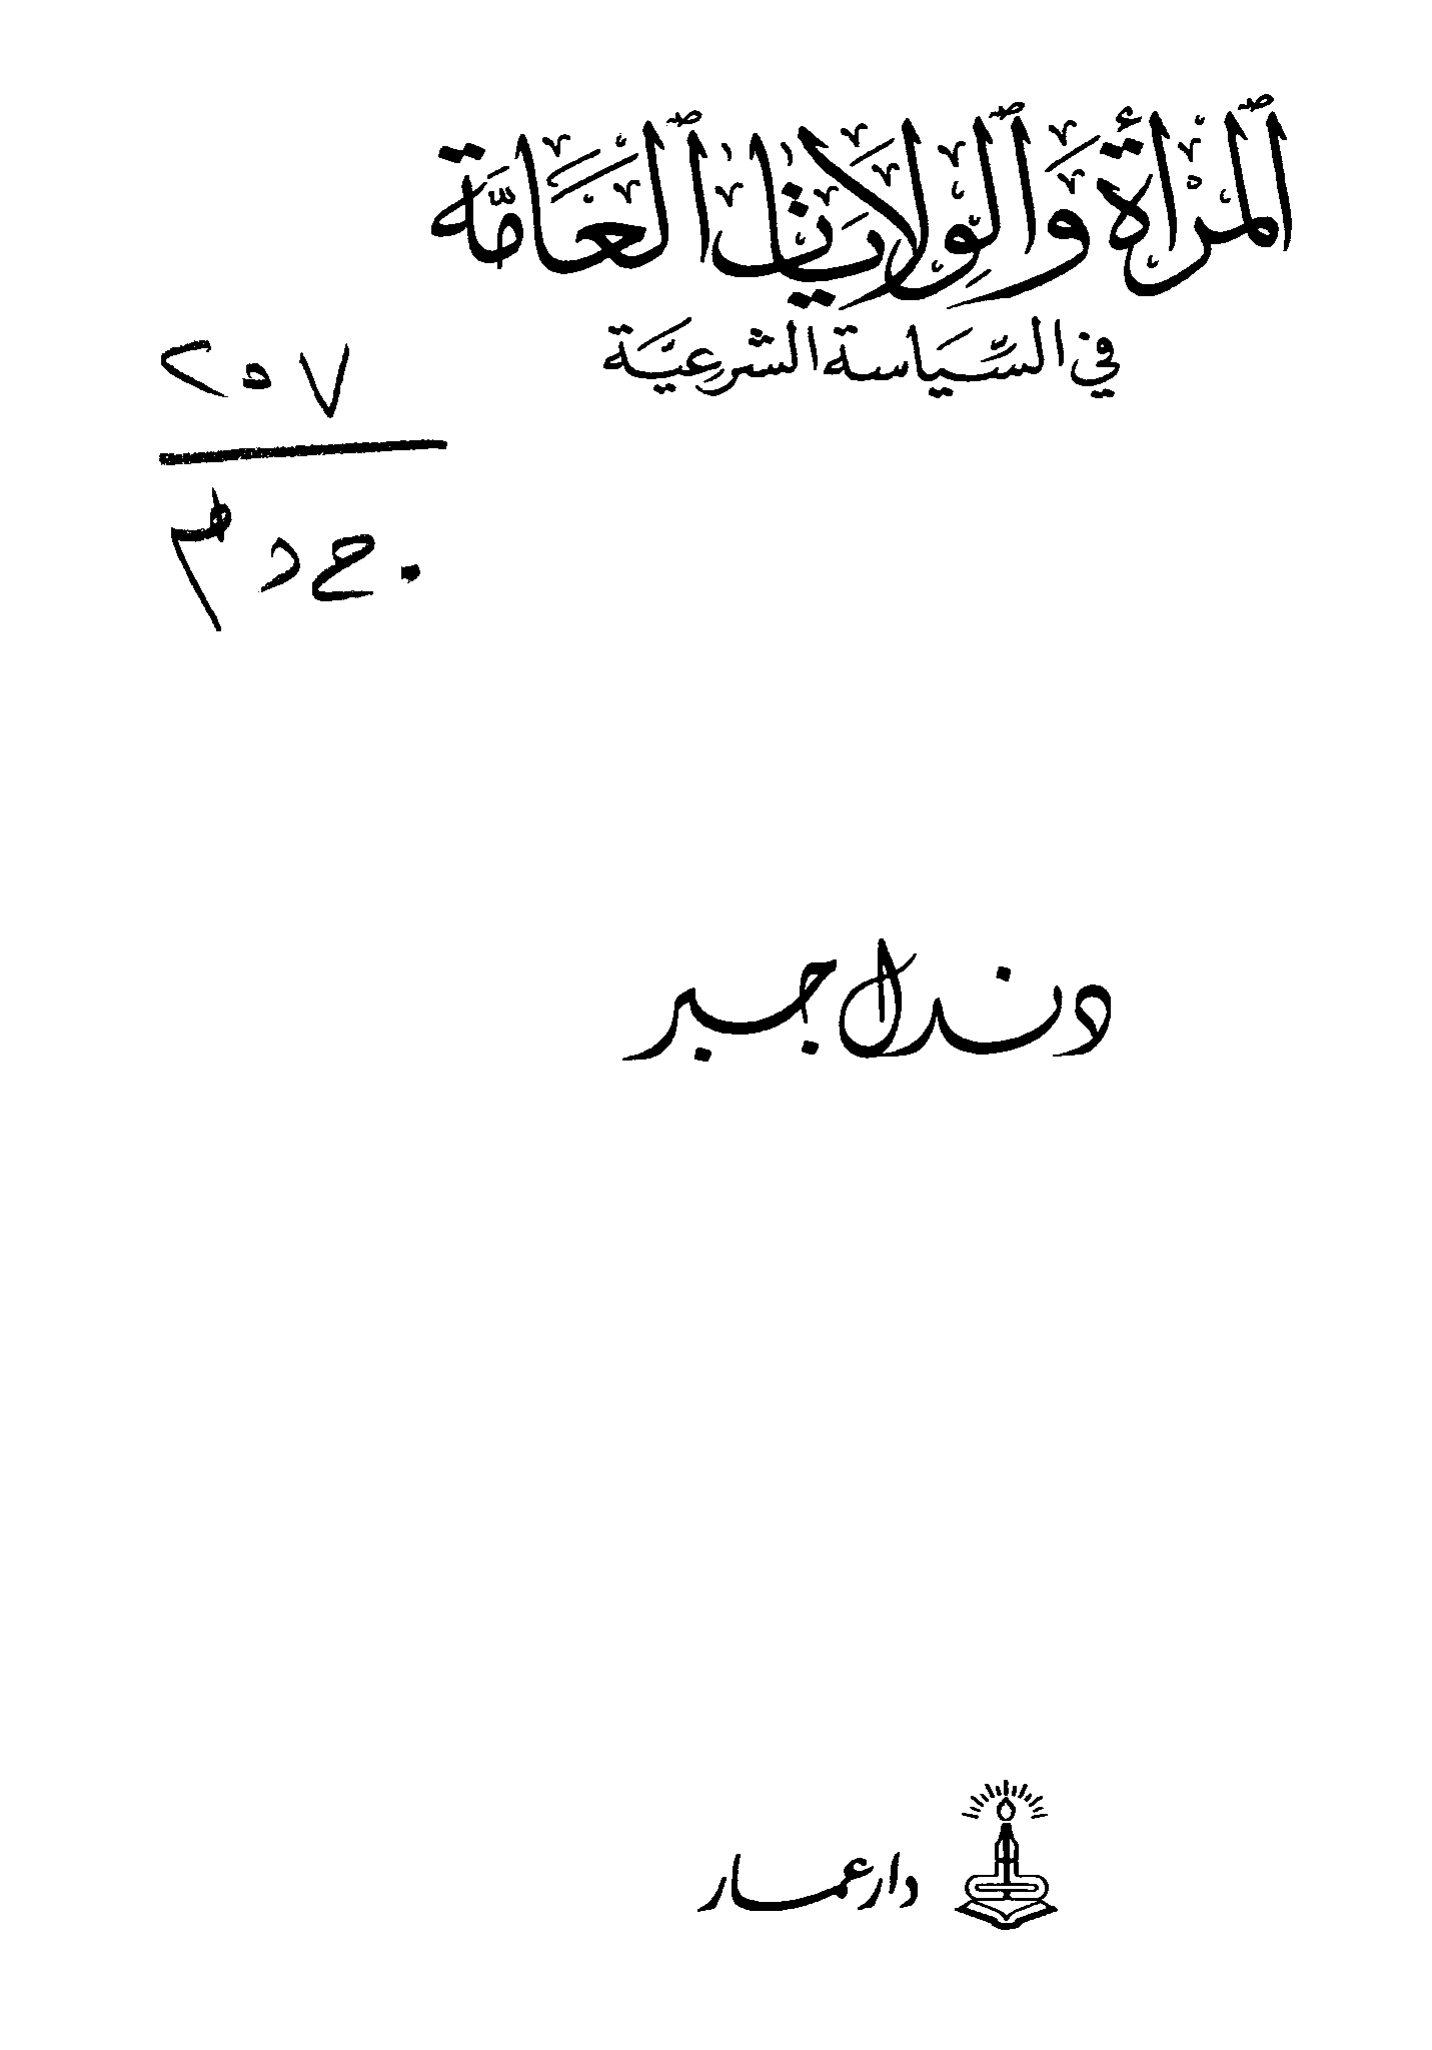 المرأة والولايات العامة
في السياسة الشرعية
دندل جبر
دار عمار